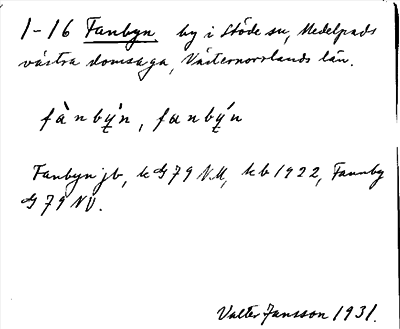 1-16 Fanbyn by i Stöde sn, Medelpads
västra domsaga, Västernorrlands län.
fànbýn, fanbýn
Fanbyn jb, k G79 N.M, kb 1922, Fannby
G79 NV.
Valter Jansson 1931.